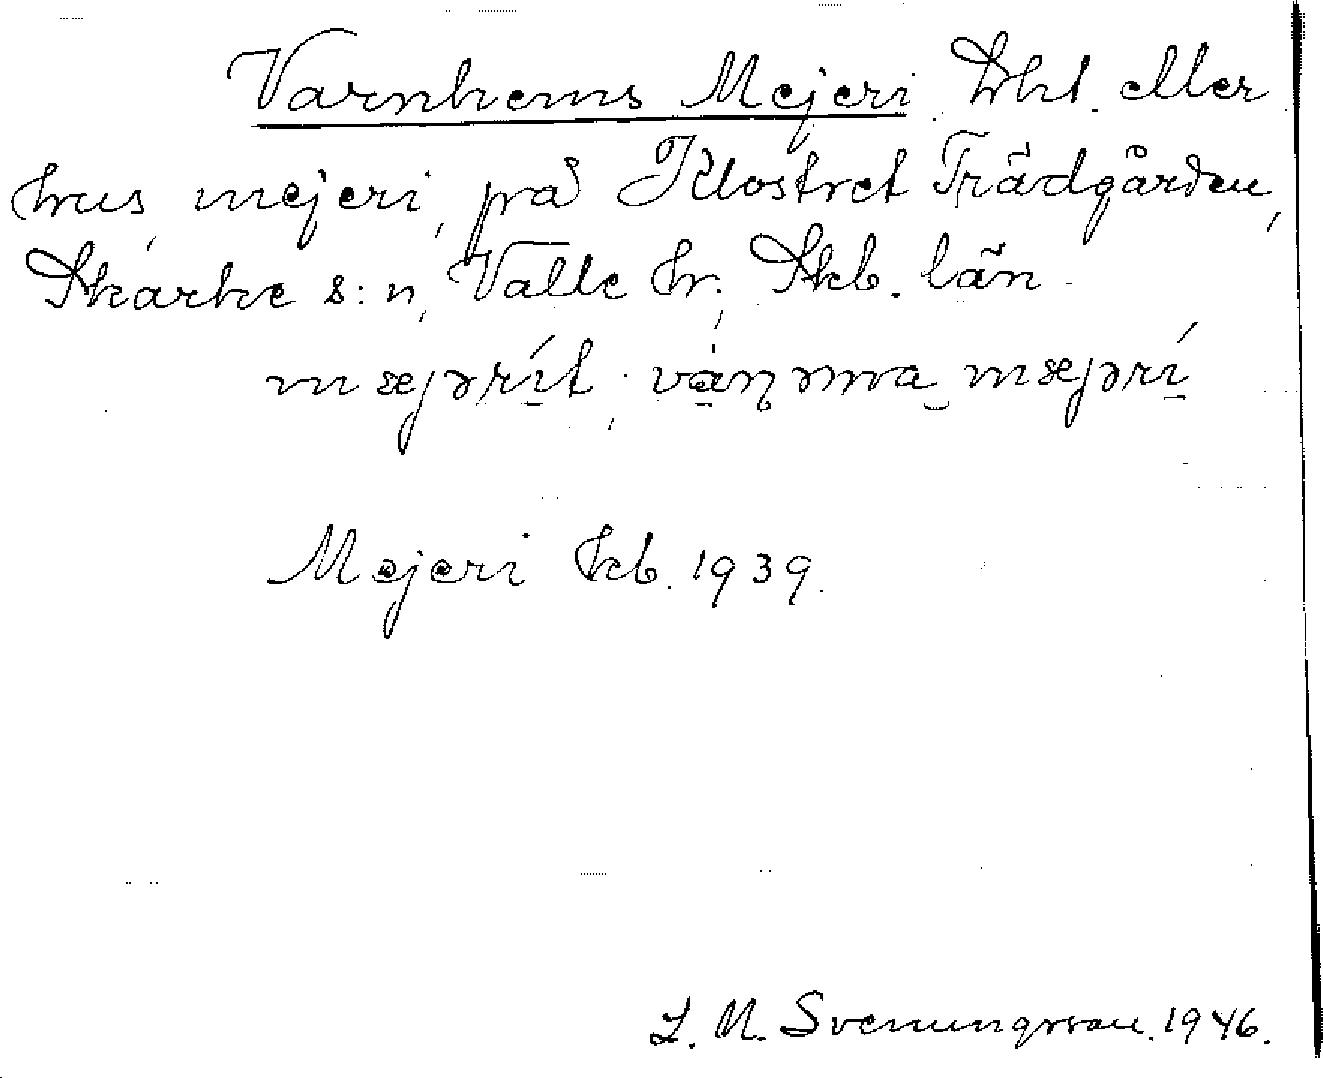 Varnhems Mejeri. Lht. eller
hus, mejeri, på Klostret Trädgården,
Skarke s:n, Valle hr, Skb. län.
mæjərít,
mæjərí
Mejeri Ekb. 1939.
S. M. Svenungsson. 1946.